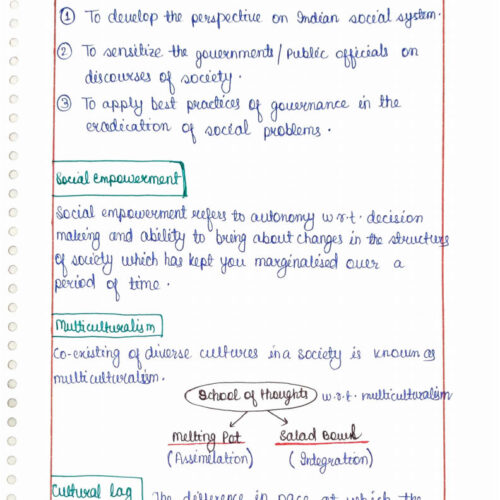 ① To develop the perspective on Indian social system.
② To sensitize the governments/Public officials on
discourses of society.
③ To apply best practices of governance in the
eradication of social problems.
Social empowerment
Social empowerment refers to autonomy w.r.t. decision
making and ability to bring about changes in the structure
of society which has kept you marginalised over a
period of time.
Multiculturalism
Co-existing of diverse cultures in a society is known as
multiculturalism.
School of thoughts w.r.t. multiculturalism
Melting Pot Salad Bowl
(Assimilation) (Integration)
Cultural lag The difference in pace at which the